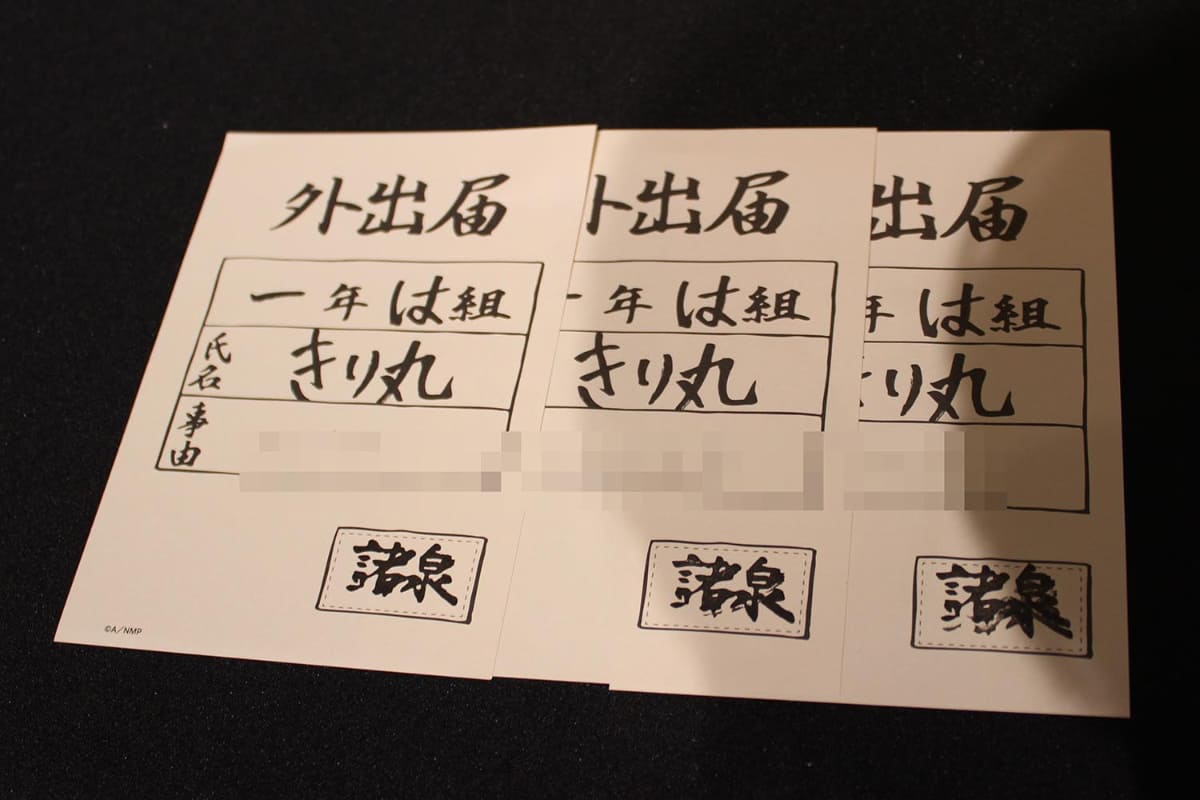 外出届
一年は組
氏名 きり丸
事由
諸泉
©A/NMP
ト出届
一年は組
きり丸
諸泉
出届
年は組
きり丸
諸泉